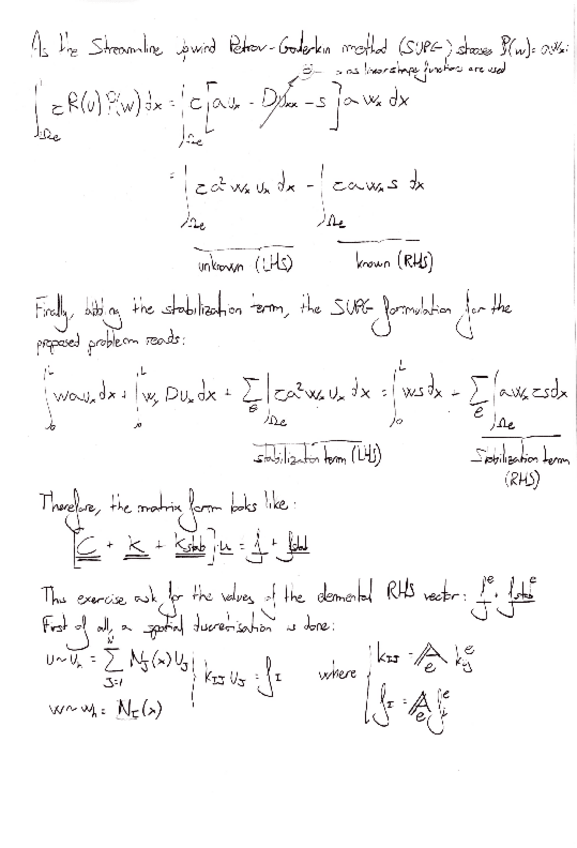 As the Streamline upwind Petrov-Galerkin method (SUPG) chooses P(w) = a wx:
0 → as linear shape functions are used
∫Ωe τ R(u) P(w) dx = ∫Ωe τ [a ux - D uxx - s] a wx dx
= ∫Ωe τ a² wx ux dx - ∫Ωe τ a wx s dx
unknown (LHS) known (RHS)
Finally, adding the stabilization term, the SUPG formulation for the
proposed problem reads:
∫0^L w a ux dx + ∫0^L wx D ux dx + Σe ∫Ωe τ a² wx ux dx = ∫0^L w s dx + Σe ∫Ωe a wx τ s dx
stabilization term (LHS) Stabilization term
(RHS)
Therefore, the matrix form looks like:
[C + K + Kstab] · u = f + fstab
This exercise ask for the values of the elemental RHS vector: f^e + fstab^e
First of all, a spatial discretisation is done:
u ~ uh = Σ J=1 N NJ(x) UJ | kIJ UJ = fI where | kIJ = A e kij^e
w ~ wh = NI(x) fI = A e fi^e